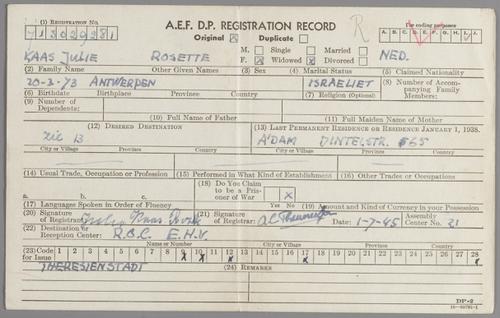 (1) REGISTRATION NO.
A.E.F. D.P. REGISTRATION RECORD
Original ☒ Duplicate ☐
R
For coding purposes
A. B. C. D. E. F. G. H. I. J.
M. ☐ Single ☐ Married ☐
F. ☒ Widowed ☒ Divorced ☐
KAAS JULIE ROSETTE NED.
(2) Family Name Other Given Names (3) Sex (4) Marital Status (5) Claimed Nationality
20-3-73 ANTWERPEN ISRAELIET
(6) Birthdate Birthplace Province Country (7) Religion (Optional) (8) Number of Accompanying Family Members:
(9) Number of Dependents:
(10) Full Name of Father (11) Full Maiden Name of Mother
(12) DESIRED DESTINATION (13) LAST PERMANENT RESIDENCE OR RESIDENCE JANUARY 1, 1938.
A'DAM DINTELSTR.
City or Village Province Country City or Village Province Country
(14) Usual Trade, Occupation or Profession (15) Performed in What Kind of Establishment (16) Other Trades or Occupations
(18) Do You Claim to be a Prisoner of War
a. b. c. Yes No X
(17) Languages Spoken in Order of Fluency (19) Amount and Kind of Currency in your Possession
(20) Signature of Registrant: (21) Signature of Registrar: Date: 1-7-45 Assembly Center No. 21
(22) Destination or Reception Center: R.B.C. E.H.V.
Name or Number City or Village Province Country
(23) Code for Issue 1 2 3 4 5 6 7 8 9 10 11 12 13 14 15 16 17 18 19 20 21 22 23 24 25 26 27 28
THERESIENSTADT (24) REMARKS
DP-2